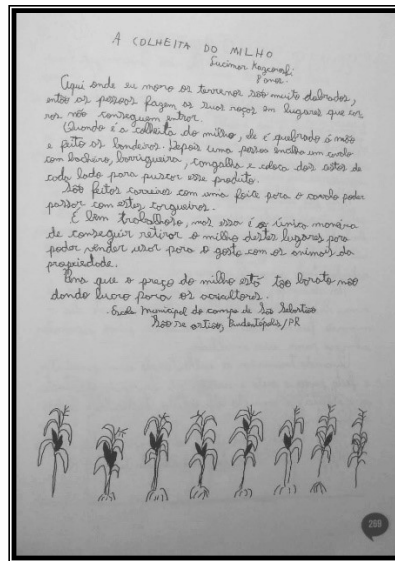 A COLHEITA DO MILHO
Lucimar
8 anos.
Aqui onde eu moro os terrenos são muito dobrados,
então as pessoas fazem as suas roças em lugares que car
ros não conseguem entrar.
Quando é a colheita do milho, ele é quebrado à mão
e feito os banderos. Depois uma pessoa encilha um cavalo
com bacheiro, barrigueira, cangalha e coloca dois cestos de
cada lado para puscar esse produto.
São feitos carreiros com uma foice para o cavalo poder
passar com estes cargueiros.
É bem trabalhoso, mas essa é a única maneira
de conseguir retirar o milho destes lugares para
poder vender usar para o gasto com os animais da
propriedade.
que o preço do milho está tão barato não
dando lucro para os
Escola Municipal do campo de São Sebastião
São Sebastião, Prudentópolis/PR
269